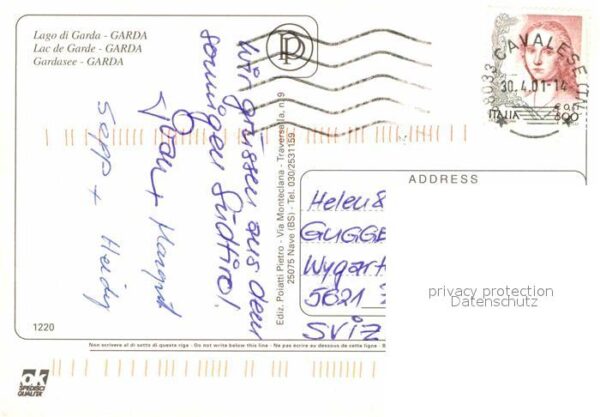 Lago di Garda - GARDA
Lac de Garde - GARDA
Gardasee - GARDA
P
38033 CAVALESE (TN)
30.4.01-14
ITALIA
€ 0,41
800
wir grüssen aus dem
sonnigen Südtirol!
Sepp + Heidy
Ediz. Poiatti Pietro - Via Monteclana - Traversa IIa, n. 9
25075 Nave (BS) - Tel. 030/2531159
ADDRESS
Helen &
GUGGE
Wygart
5621
SVIZ
privacy protection
Datenschutz
1220
Non scrivere al di sotto di questa riga - Do not write below this line - Ne pas écrire au dessous de cette ligne -
ok
SPEDISCI
QUALITÀ